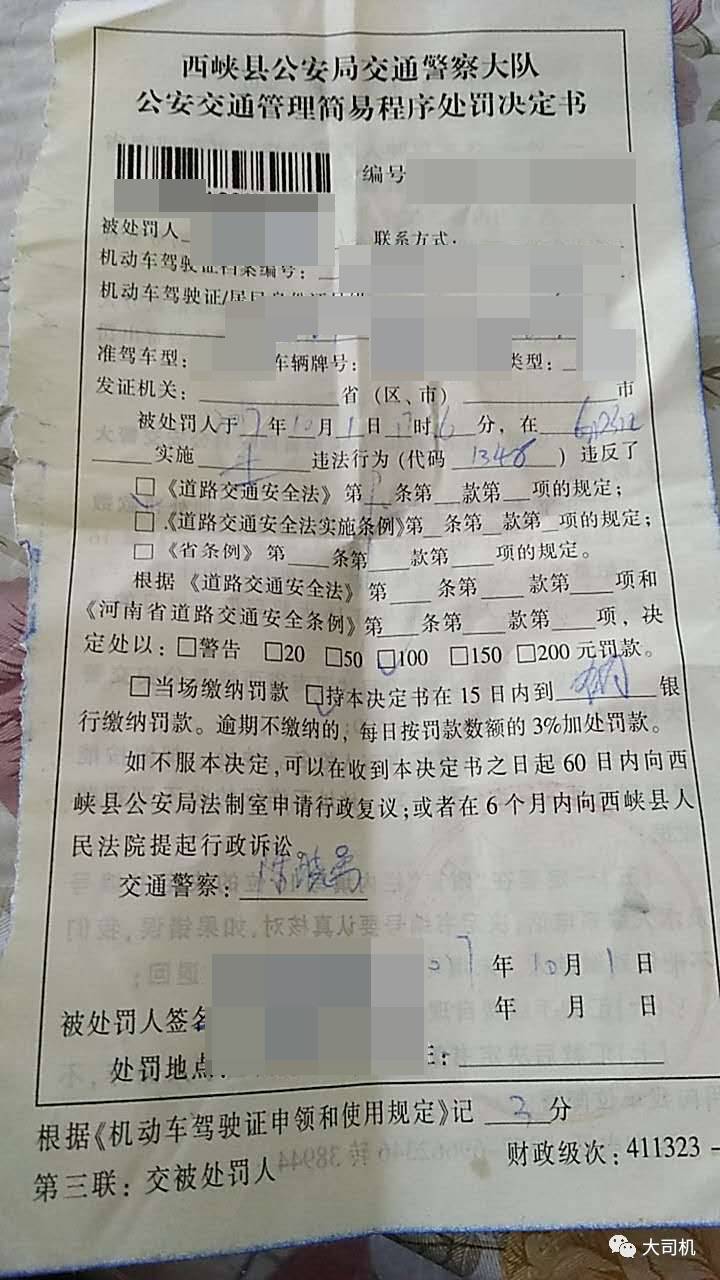 西峡县公安局交通警察大队
公安交通管理简易程序处罚决定书
编号
被处罚人
联系方式:
机动车驾驶证档案编号:
机动车驾驶证/居民身份证
准驾车型: 车辆牌号: 类型:
发证机关: 省(区、市) 市
被处罚人于 7年10月1日17时6分,在
实施 违法行为(代码 1346)违反了
□《道路交通安全法》第 条第 款第 项的规定;
□《道路交通安全法实施条例》第 条第 款第 项的规定;
□《省条例》第 条第 款第 项的规定。
根据《道路交通安全法》第 条第 款第 项和
《河南省道路交通安全条例》第 条第 款第 项,决
定处以:□警告 □20 □50 □100 □150 □200元罚款。
□当场缴纳罚款 □持本决定书在15日内到 银
行缴纳罚款。逾期不缴纳的,每日按罚款数额的3%加处罚款。
如不服本决定,可以在收到本决定书之日起60日内向西
峡县公安局法制室申请行政复议;或者在6个月内向西峡县人
民法院提起行政诉讼。
交通警察:
7年10月1日
年 月 日
被处罚人签名
处罚地点:
根据《机动车驾驶证申领和使用规定》记 3 分
第三联:交被处罚人
财政级次:411323-
大司机